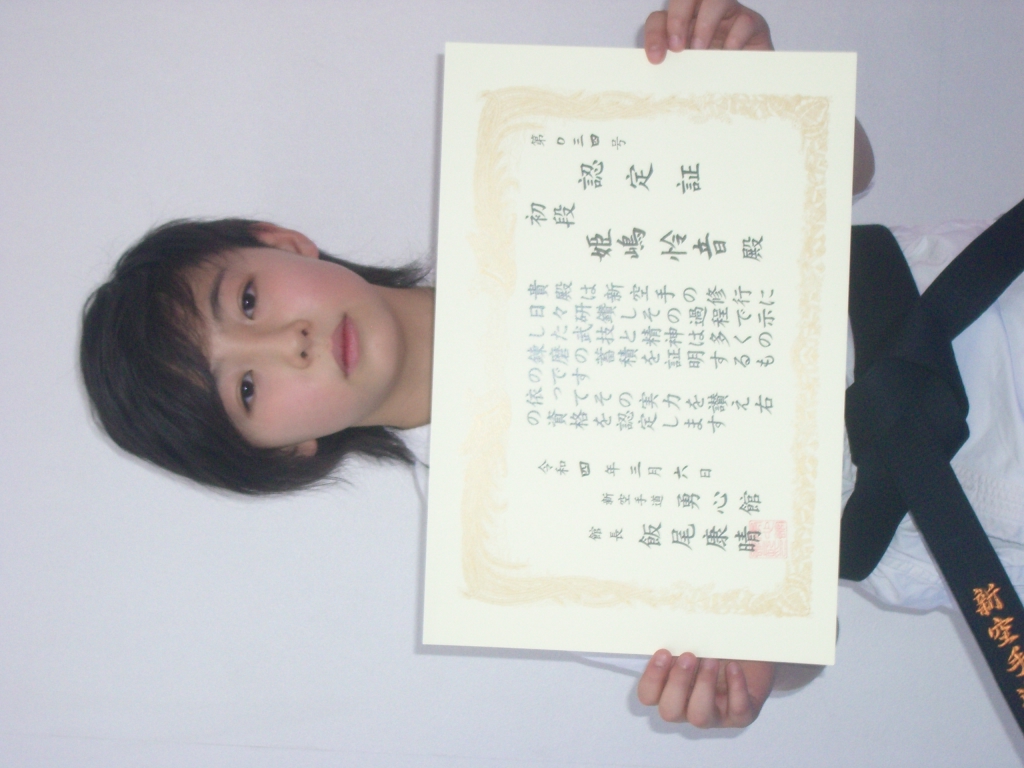 第０三四号
認定証
初段
姫嶋怜音殿
貴殿は新空手の修行に
日々研鑽しその過程で示
した武技と精神は多くの
錬磨の蓄積を証明するも
のです
依ってその実力を讃え右
の資格を認定します
令和四年三月六日
新空手道 勇心館
館長 飯尾康晴
新空手